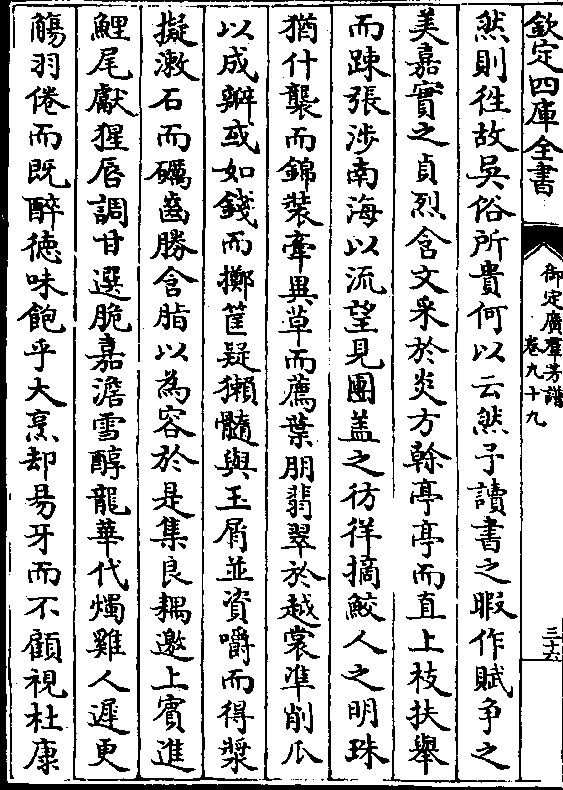 欽定四庫全書
御定廣羣芳譜
卷九十九
三十六
然則徃故吳俗所貴何以云然予讀書之暇作賦爭之
美嘉實之貞烈含文采於炎方榦亭亭而直上枝扶舉
而踈張渉南海以流望見團盖之彷徉摘鮫人之明珠
猶什襲而錦裝牽異草而薦葉朋翡翠於越裳凖削瓜
以成瓣或如錢而擲筐疑獺髓與玉屑並資嚼而得漿
擬漱石而礪齒勝含脂以為容於是集良耦邀上賓進
鯉尾獻猩唇調甘選脆嘉澹雪醇龍華代燭雞人遲更
觴羽倦而既醉徳味飽乎大烹却昜牙而不顧視杜康